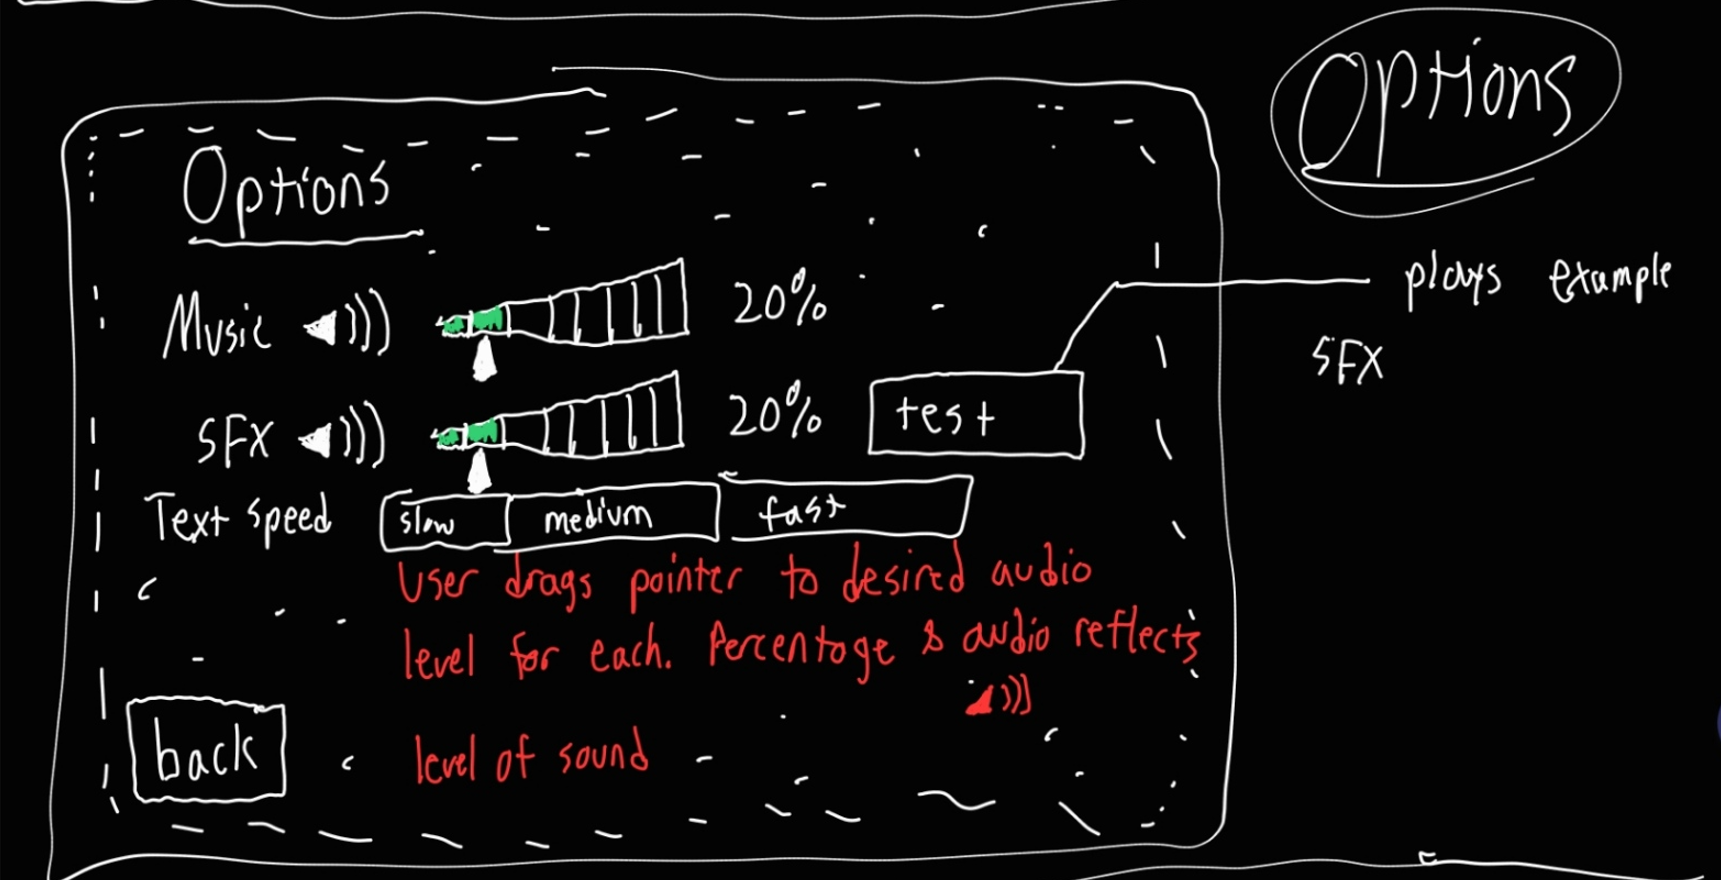 Options
Options
Music 20%
plays example
SFX
SFX 20% test
Text speed slow medium fast
User drags pointer to desired audio
level for each. Percentage & audio reflects
level of sound
back